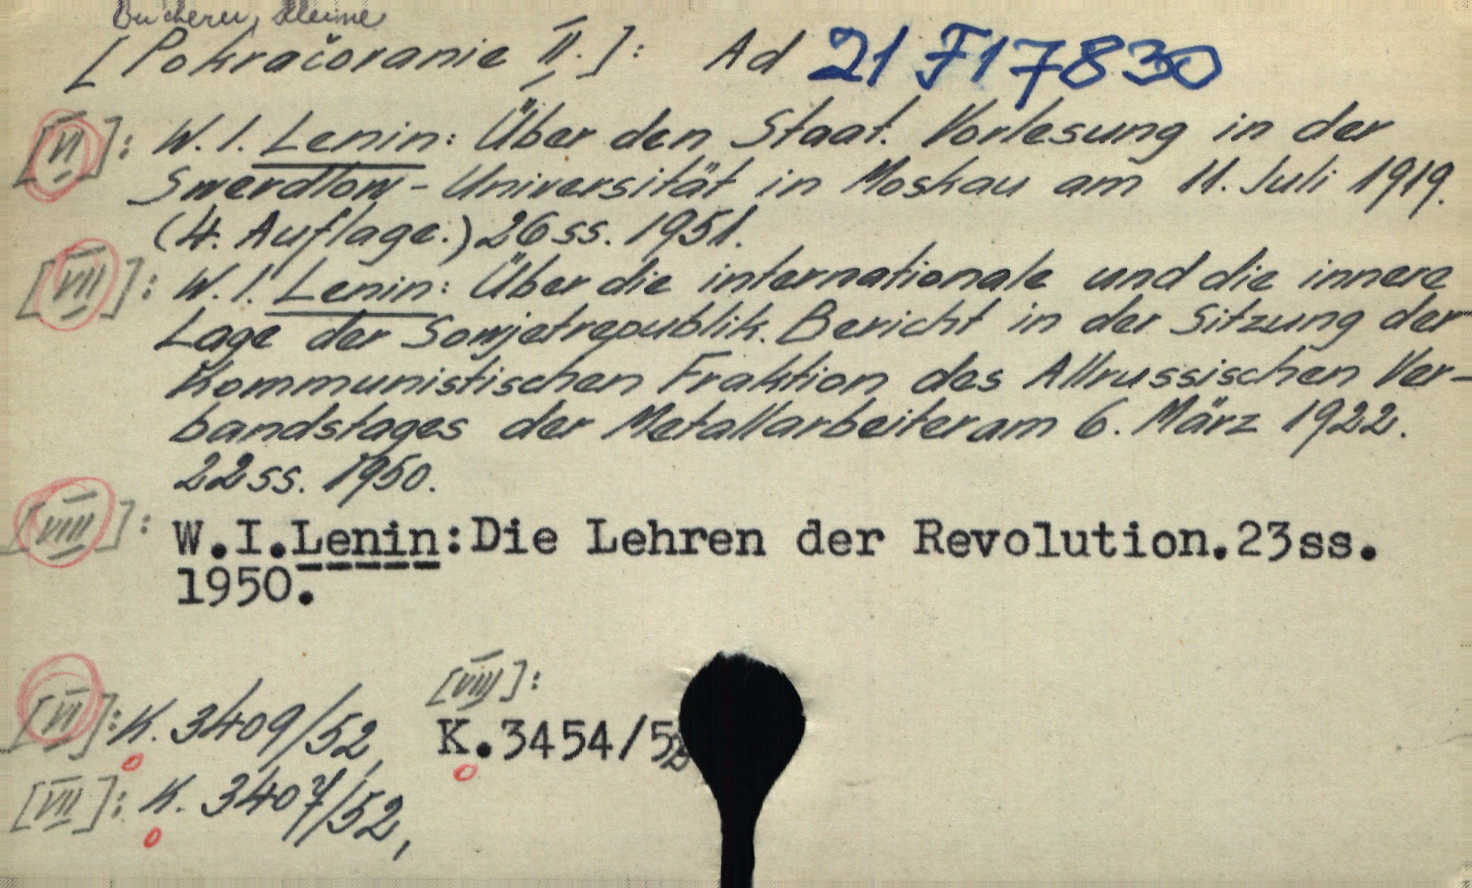 Bücherei, kleine
[Pokračovanie II.]: Ad 21 F 17830
[VI]: W. I. Lenin: Über den Staat. Vorlesung in der
Swerdlow-Universität in Moskau am 11. Juli 1919.
(4. Auflage.) 26 ss. 1951.
[VII]: W. I. Lenin: Über die internationale und die innere
Lage der Sowjetrepublik. Bericht in der Sitzung der
Kommunistischen Fraktion des Allrussischen Ver-
bandstages der Metallarbeiter am 6. März 1922.
22 ss. 1950.
[VIII]: W.I.Lenin:Die Lehren der Revolution.23ss.
1950.
[VI]: K. 3409/52,
[VIII]:
K.3454/52
[VII]: K. 3407/52,